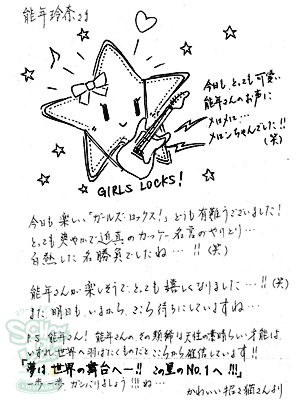 能年玲奈さま
今日も、とっても可愛い
能年さんのお声に
メロメロ…
メロンちゃんでした!!
(笑)
GIRLS LOCKS!
今日も楽しい「ガールズ・ロックス!」どうも有難うございました!
とっても爽やかで迫真のカッケー名言のやりとり…
白熱した名勝負でしたね…!!(笑)
能年さんが楽しそうで、とっても嬉しくなりました…!!(笑)
また明日も、いまから、心から待ちにしていますね…
P.S 能年さん! 能年さんの、その類稀な天性の素晴らしい才能は、
いずれ世界へ羽ばたくものだと心から確信しています!!
「夢は、世界の舞台へー!! この星のNo.1へ!!!」
一歩一歩 ガンバりましょう!!!ね…
かわいい招き猫さんより